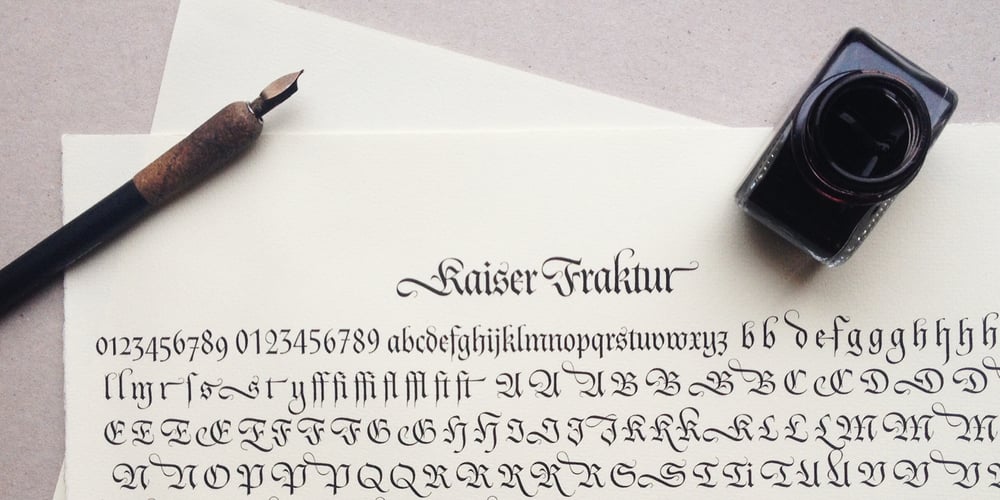 Kaiser Fraktur
0123456789 0123456789 abcdefghijklmnopqrstuvwxyz b b d e f g g g h h h h
l l m r ſ s s t y ff fi ffi fl ffl ſſ ſi ſt A A A B B B B C C D D D
E E E E F F F F G G H H I I J J K K K K L L L M M M
N N O P P P Q Q R R R R R S S T T i T U U V V V